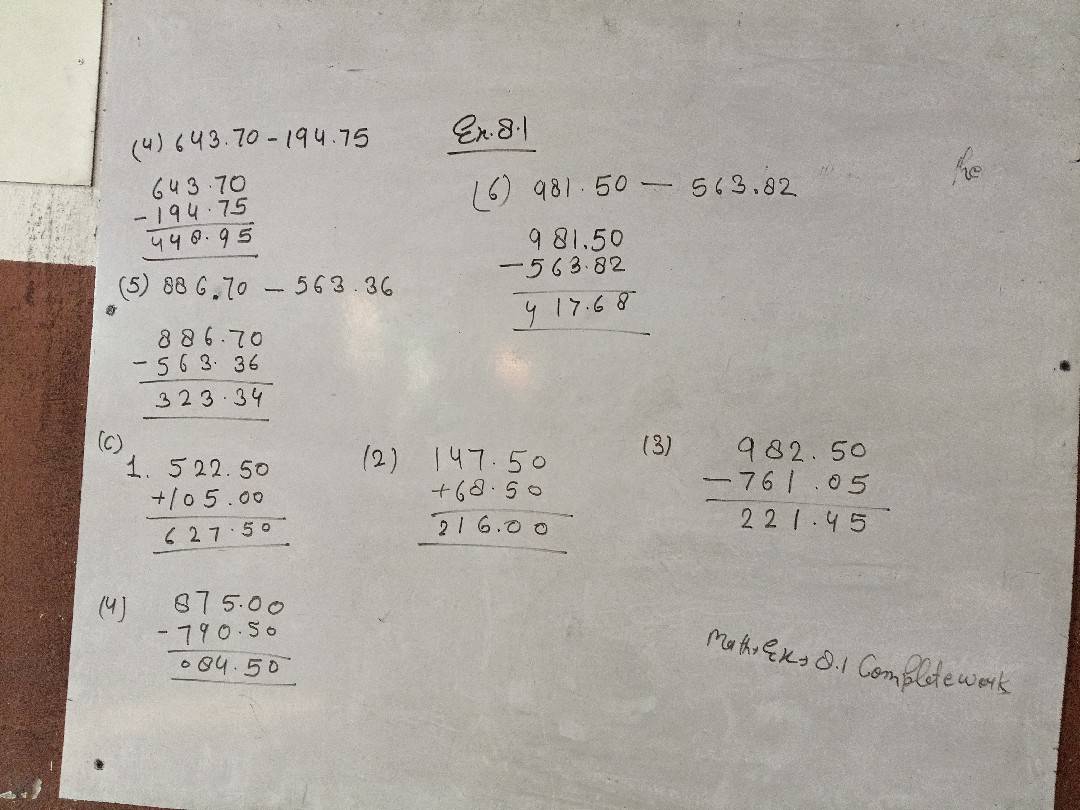 (4) 643.70 - 194.75
643.70
- 194.75
448.95
(5) 886.70 - 563.36
886.70
- 563.36
323.34
Ex. 8.1
(6) 981.50 - 563.82
981.50
- 563.82
417.68
(C)
1. 522.50
+105.00
627.50
(2) 147.50
+68.50
216.00
(3) 982.50
- 761.05
221.45
(4) 875.00
- 790.50
084.50
Math, Ex, 8.1 Complete work